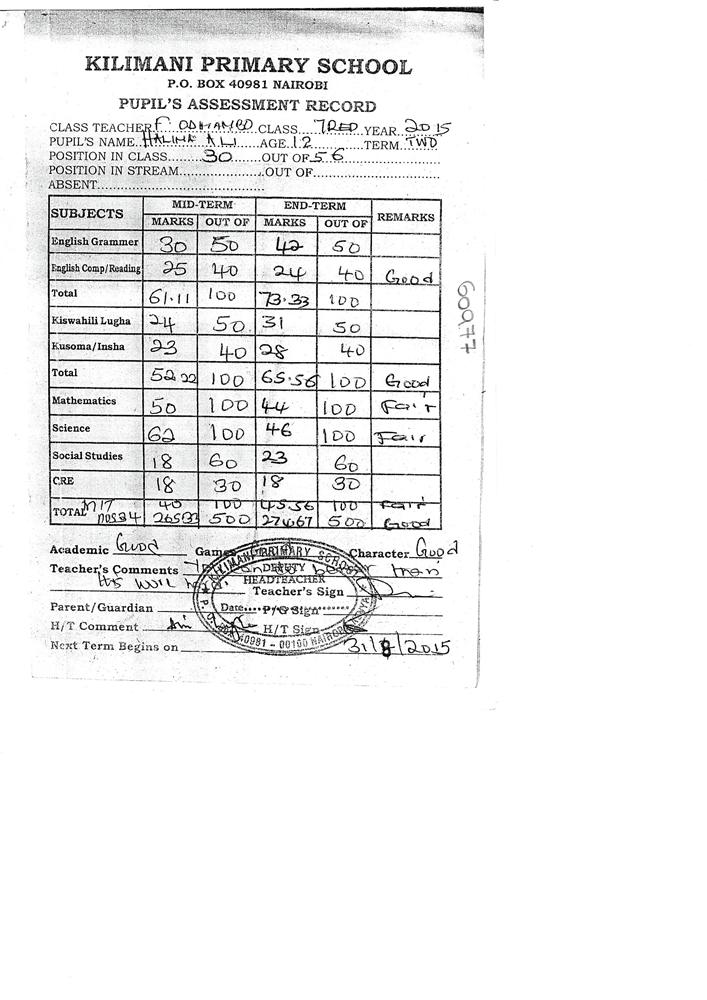 KILIMANI PRIMARY SCHOOL
P.O. BOX 40981 NAIROBI
PUPIL'S ASSESSMENT RECORD
CLASS TEACHER F. ODHIAMBO CLASS 7RED YEAR 2015
PUPIL'S NAME HALIMA ALI AGE 12 TERM TWO
POSITION IN CLASS 30 OUT OF 56
POSITION IN STREAM OUT OF
ABSENT
SUBJECTS MID-TERM END-TERM REMARKS
MARKS OUT OF MARKS OUT OF
English Grammer 30 50 42 50
English Comp/Reading 25 40 24 40 Good
Total 61.11 100 73.33 100
Kiswahili Lugha 24 50 31 50
Kusoma/Insha 23 40 28 40
Total 52.22 100 65.56 100 Good
Mathematics 50 100 44 100 Fair
Science 62 100 46 100 Fair
Social Studies 18 60 23 60
CRE 18 30 18 30
40 100 45.56 100 Fair
TOTAL 500 500 Good
600.77
Academic Good Games Character Good
Teacher's Comments
Teacher's Sign
Parent/Guardian P/G Sign
H/T Comment H/T Sign
Next Term Begins on 31/8/2015
KILIMANI PRIMARY SCHOOL
DEPUTY
HEADTEACHER
Date
P. O. BOX 40981 - 00100 NAIROBI